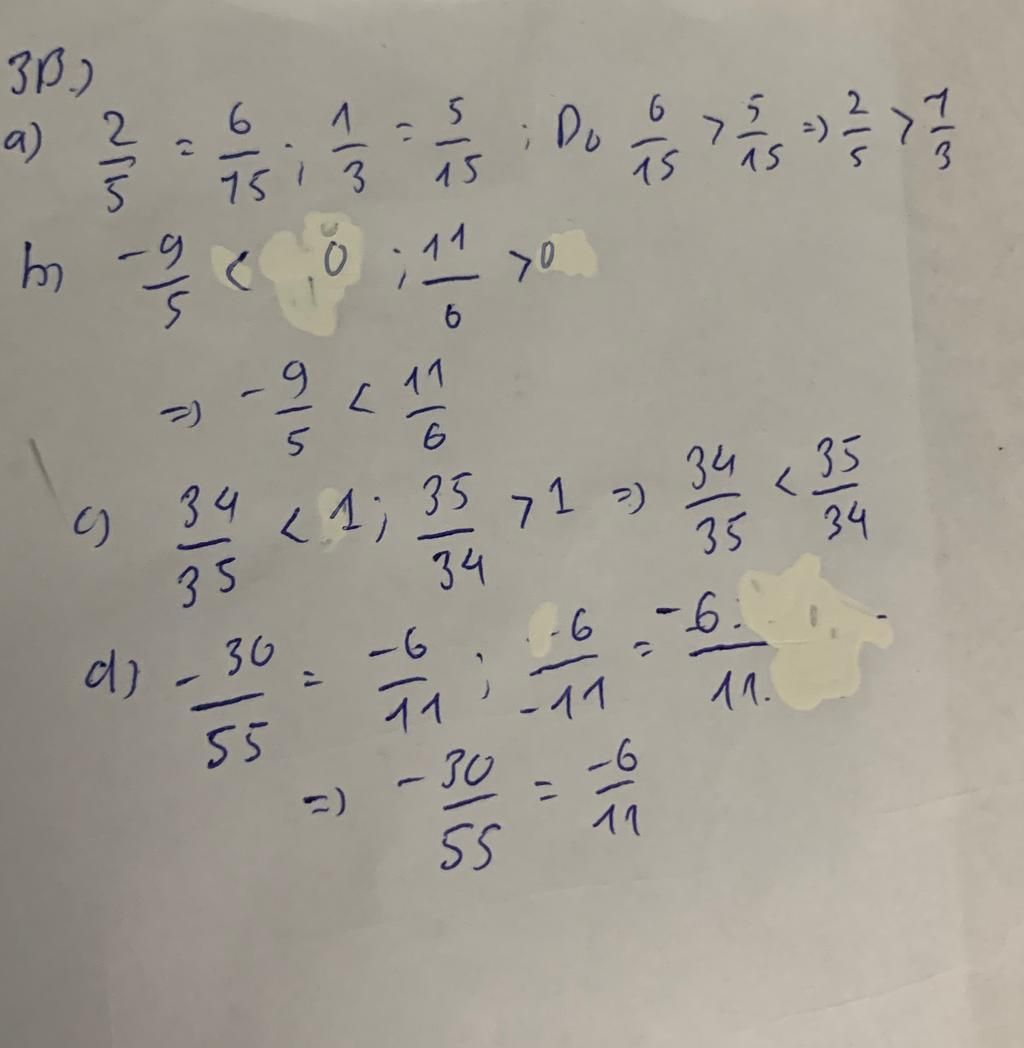 3B.)
a) 2/5 = 6/15 ; 1/3 = 5/15 ; Do 6/15 > 5/15 => 2/5 > 1/3
b) -9/5 < 0 ; 11/6 > 0
=> -9/5 < 11/6
c) 34/35 < 1 ; 35/34 > 1 => 34/35 < 35/34
d) -30/55 = -6/11 ; 6/-11 = -6/11
=> -30/55 = -6/11